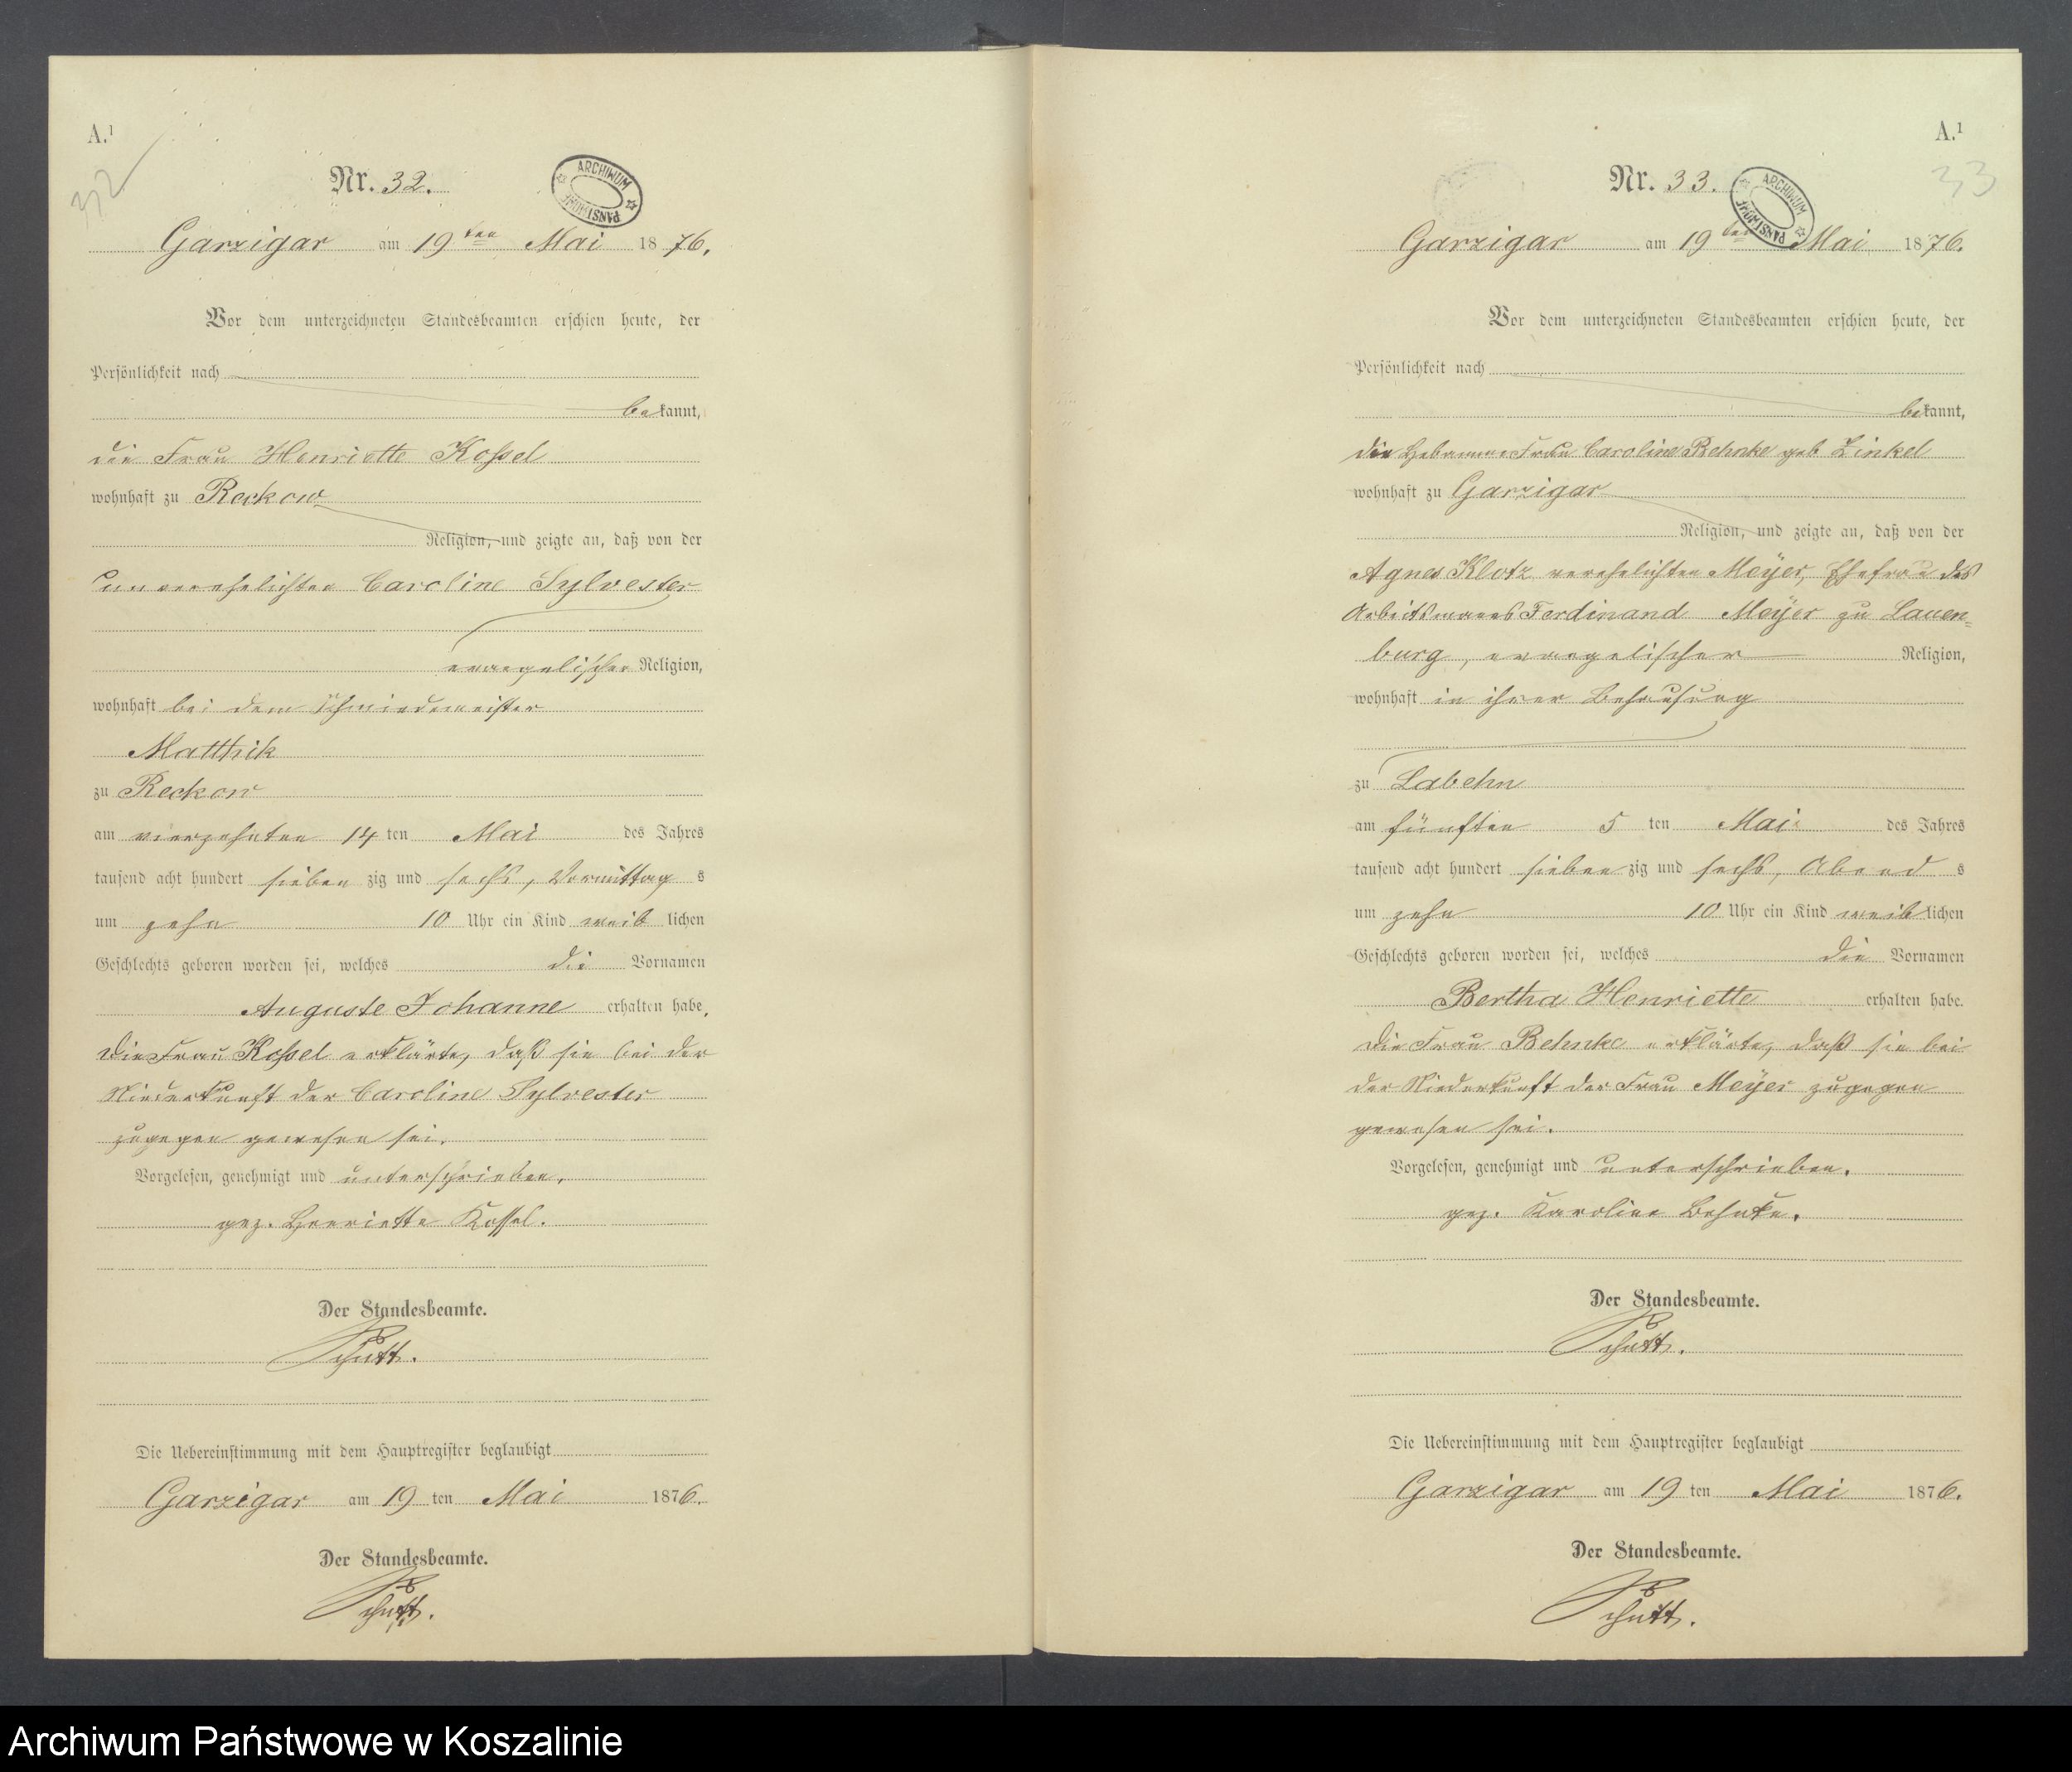 A.¹
32
Nr. 32.
ARCHIWUM PAŃSTWOWE
Garzigar am 19ten Mai 1876.
Vor dem unterzeichneten Standesbeamten erschien heute, der
Persönlichkeit nach
bekannt,
die Frau Henriette Koßel
wohnhaft zu Reckow
Religion, und zeigte an, daß von der
unverehelichten Caroline Sylvester
evangelischer Religion,
wohnhaft bei dem Schmiedemeister
Matthik
zu Reckow
am vierzehnten 14 ten Mai des Jahres
tausend acht hundert sieben zig und sechs, Vormittag s
um zehn 10 Uhr ein Kind weib lichen
Geschlechts geboren worden sei, welches die Vornamen
Auguste Johanne erhalten habe.
Die Frau Koßel erklärte, daß sie bei der
Niederkunft der Caroline Sylvester
zugegen gewesen sei.
Vorgelesen, genehmigt und unterschrieben.
gez. Henriette Kossel.
Der Standesbeamte.
Schütt.
Die Uebereinstimmung mit dem Hauptregister beglaubigt
Garzigar am 19 ten Mai 1876.
Der Standesbeamte.
Schütt.
A.¹
33
Nr. 33.
ARCHIWUM PAŃSTWOWE
Garzigar am 19ten Mai 1876.
Vor dem unterzeichneten Standesbeamten erschien heute, der
Persönlichkeit nach
bekannt,
die Hebamme Frau Caroline Behnke geb Zinkel
wohnhaft zu Garzigar
Religion, und zeigte an, daß von der
Agnes Klotz verehelichten Meÿer, Ehefrau des
Arbeitsmanns Ferdinand Meÿer zu Lauen=
burg, evangelischer Religion,
wohnhaft in ihrer Behausung
zu Labehn
am fünften 5 ten Mai des Jahres
tausend acht hundert sieben zig und sechs, Abend s
um zehn 10 Uhr ein Kind weib lichen
Geschlechts geboren worden sei, welches die Vornamen
Bertha Henriette erhalten habe.
Die Frau Behnke erklärte, daß sie bei
der Niederkunft der Frau Meÿer zugegen
gewesen sei.
Vorgelesen, genehmigt und unterschrieben.
gez. Karoline Behnke.
Der Standesbeamte.
Schütt.
Die Uebereinstimmung mit dem Hauptregister beglaubigt
Garzigar am 19 ten Mai 1876.
Der Standesbeamte.
Schütt.
Archiwum Państwowe w Koszalinie